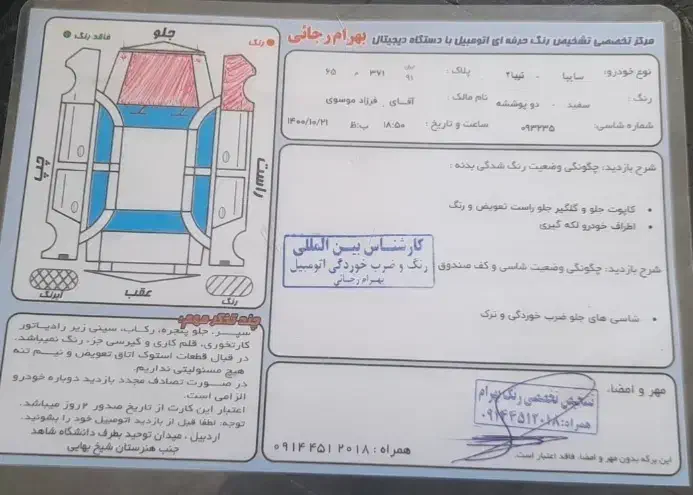 مرکز تخصصی تشخیص رنگ حرفه ای اتومبیل با دستگاه دیجیتال بهرام رجائی
نوع خودرو: سایپا - تیبا۲ پلاک: ایران ۹۱ ۳۷۱ ه ۲۵
رنگ: سفید - دوپوششه نام مالک: آقای فرزاد موسوی
شماره شاسی: ۰۹۳۲۳۵ ساعت و تاریخ: ۱۸:۵۰ ب.ظ ۱۴۰۰/۱۰/۲۱
شرح بازدید: چگونگی وضعیت رنگ شدگی بدنه:
• کاپوت جلو و گلگیر جلو راست تعویض و رنگ
• اطراف خودرو لکه گیری
کارشناس بین المللی
رنگ و ضرب خوردگی اتومبیل
بهرام رجائی
شرح بازدید: چگونگی وضعیت شاسی و کف صندوق
• شاسی های جلو ضرب خوردگی و ترک
مهر و امضاء:
تشخیص تخصصی رنگ بهرام
همراه: ۰۹۱۴۴۵۱۲۰۱۸
همراه: ۰۹۱۴۴۵۱۲۰۱۸
این برگه بدون مهر و امضاء، فاقد اعتبار است.
رنگ
جلو
فاقد رنگ
راست
چپ
عقب
رنگ
آبرنگ
چند تذکر مهم:
سپر، جلو پنجره، رکاب، سینی زیر رادیاتور
کارتخوری، قلم کاری و گیرسی جز، رنگ نمیباشد.
در قبال قطعات استوک اتاق تعویض و نیم تنه
هیچ مسئولیتی نداریم.
در صورت تصادف مجدد بازدید دوباره خودرو
الزامی است.
اعتبار این کارت از تاریخ صدور ۲ روز میباشد.
توجه: لطفا قبل از بازدید اتومبیل خود را بشوئید.
اردبیل، میدان توحید بطرف دانشگاه شاهد
جنب هنرستان شیخ بهایی